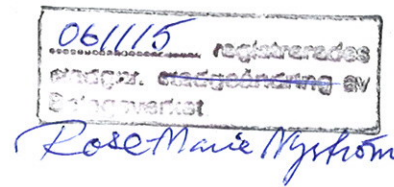 061115 registrerades
stadgar. stadgeändring av
Bolagsverket
Rose-Marie Nyström